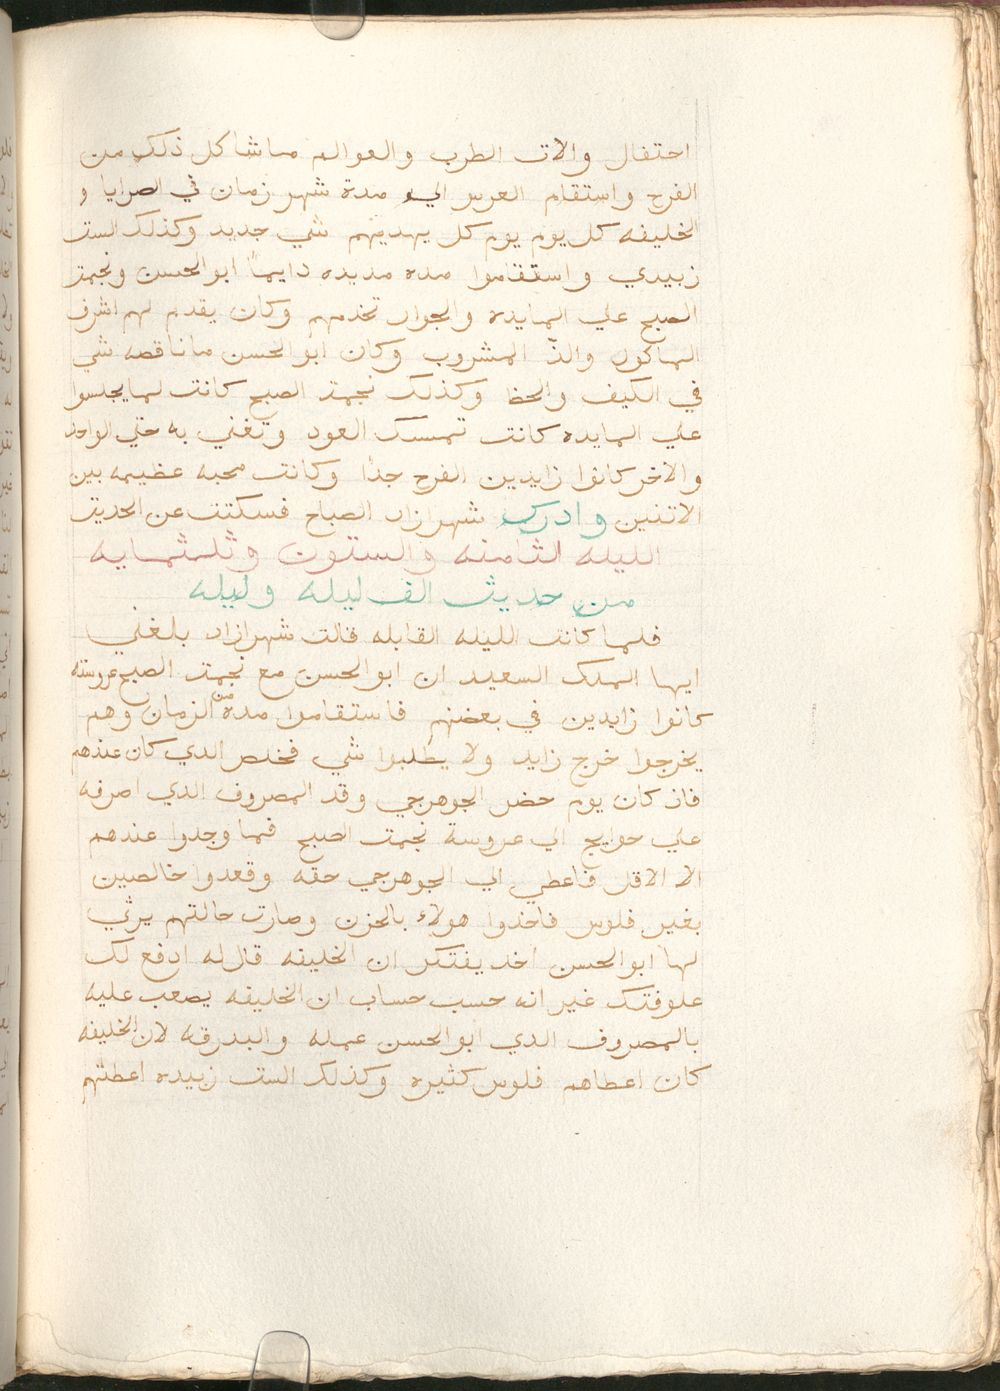 احتفال والات الطرب والعوالم مما شاكل ذلك من
الفرح واستقام العرس الي مدة شهر زمان في الصرايا و
الخليفه كل يوم يوم كل يهديهم شي جديد وكذلك الست
زبيدي واستقاموا مده مديده دايماً ابو الحسن ونجمة
الصبح علي المايده والجوار تخدمهم وكان يقدم لهم اشرف
الماكول والذّ المشروب وكان ابو الحسن ما ناقصه شي
في الكيف والحظ وكذلك نجمة الصبح كانت لما يجلسوا
علي المايده كانت تمسك العود وتغني به حتي الواحد
والاخر كانوا زايدين الفرح جدًا وكانت محبه عظيمه بين
الاتنين وادرك شهرازاد الصباح فسكتت عن الحديث
الليله الثامنه والستون وثلثمايه
من حديث الف ليله وليله
فلما كانت الليله القابله قالت شهرازاد بلغني
ايها الملك السعيد ان ابو الحسن مع نجمة الصبح عروسته
كانوا زايدين في بعضهم فاستقاموا مدة من الزمان وهم
يخرجوا خرج زايد ولا يطلبوا شي فخلص الدي كان عندهم
فاذ كان يوم حضر الجوهرجي وقد المصروف الدي اصرفه
علي حوايج الي عروسة نجمة الصبح فما وجدوا عندهم
الا الاقل فاعطي الي الجوهرجي حقه وقعدوا خالصين
بغير فلوس فاخدوا هولاء بالحزن وصارت حالتهم يرثي
لها ابو الحسن اخد يفتكر ان الخليفه قال له ادفع لك
علوفتك غير انه حسب حساب ان الخليفه يصعب عليه
بالمصروف الدي ابو الحسن عمله والبدرقه لان الخليفه
كان اعطاهم فلوس كثيره وكذلك الست زبيده اعطتهم